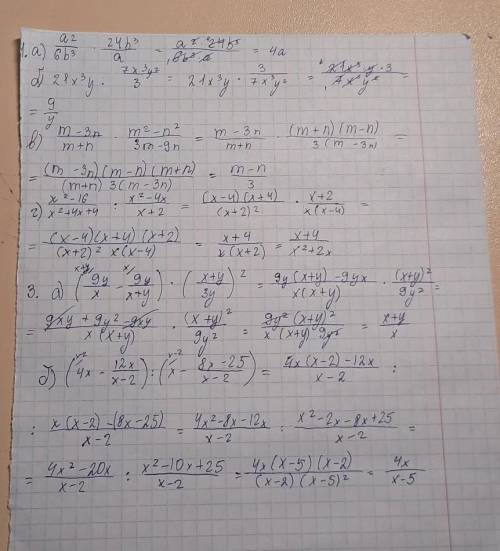 1. а) a²/6b³ · 24b³/a = a² 24b³/6b³ a = 4a
б) 21x³y · 7x³y²/3 = 21x³y · 3/7x³y² = 21x³y·3/7x³y² =
= 9/y
в) m-3n/m+n · m²-n²/3m-9n = m-3n/m+n · (m+n)(m-n)/3(m-3n) =
(m-3n)(m-n)(m+n)/(m+n) 3(m-3n) = m-n/3
г) x²-16/x²+4x+4 : x²-4x/x+2 = (x-4)(x+4)/(x+2)² · x+2/x(x-4) =
= (x-4)(x+4)(x+2)/(x+2)² x(x-4) = x+4/x(x+2) = x+4/x²+2x
3. а) (9y/x - 9y/x+y) · (x+y/3y)² = 9y(x+y)-9yx/x(x+y) · (x+y)²/9y² =
= 9xy+9y²-9xy/x(x+y) · (x+y)²/9y² = 9y²(x+y)²/x(x+y)9y² = x+y/x
б) (4x - 12x/x-2) : (x - 8x-25/x-2) = 4x(x-2)-12x/x-2 :
: x(x-2)-(8x-25)/x-2 = 4x²-8x-12x/x-2 : x²-2x-8x+25/x-2 =
= 4x²-20x/x-2 : x²-10x+25/x-2 = 4x(x-5)(x-2)/(x-2)(x-5)² = 4x/x-5